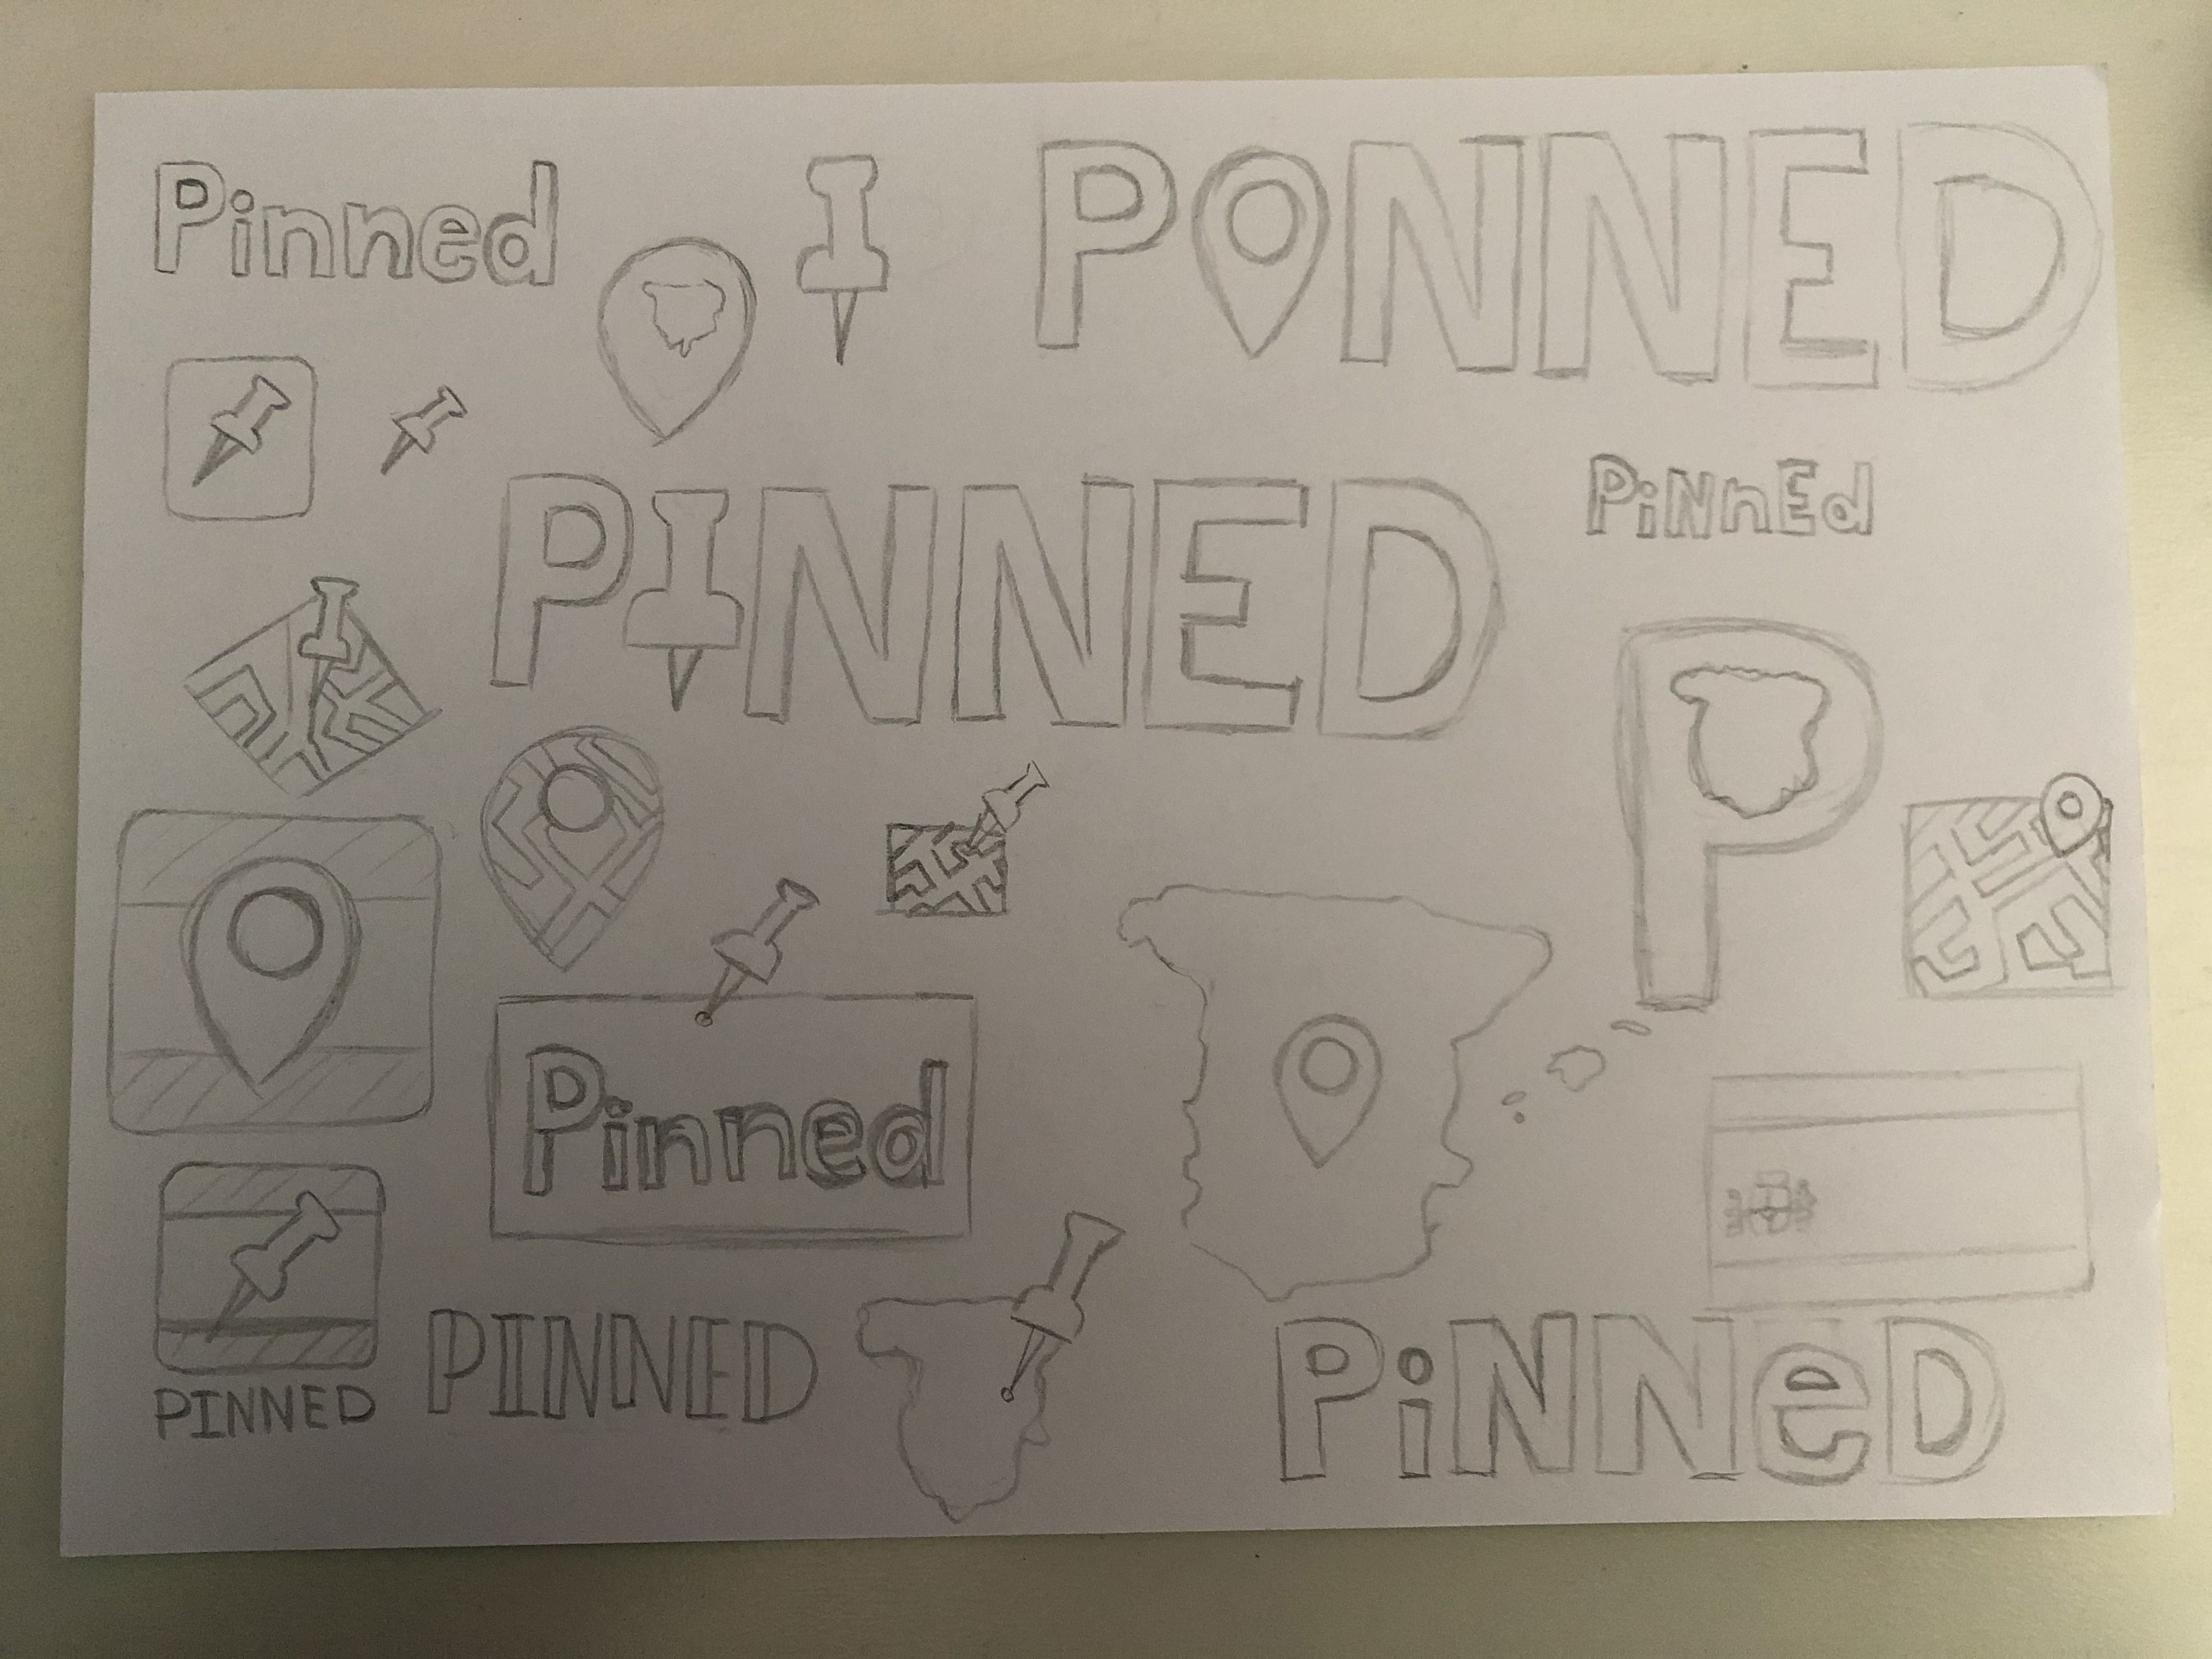 Pinned
PINNED
PiNnEd
PINNED
P
Pinned
PINNED
PiNNeD
PINNED